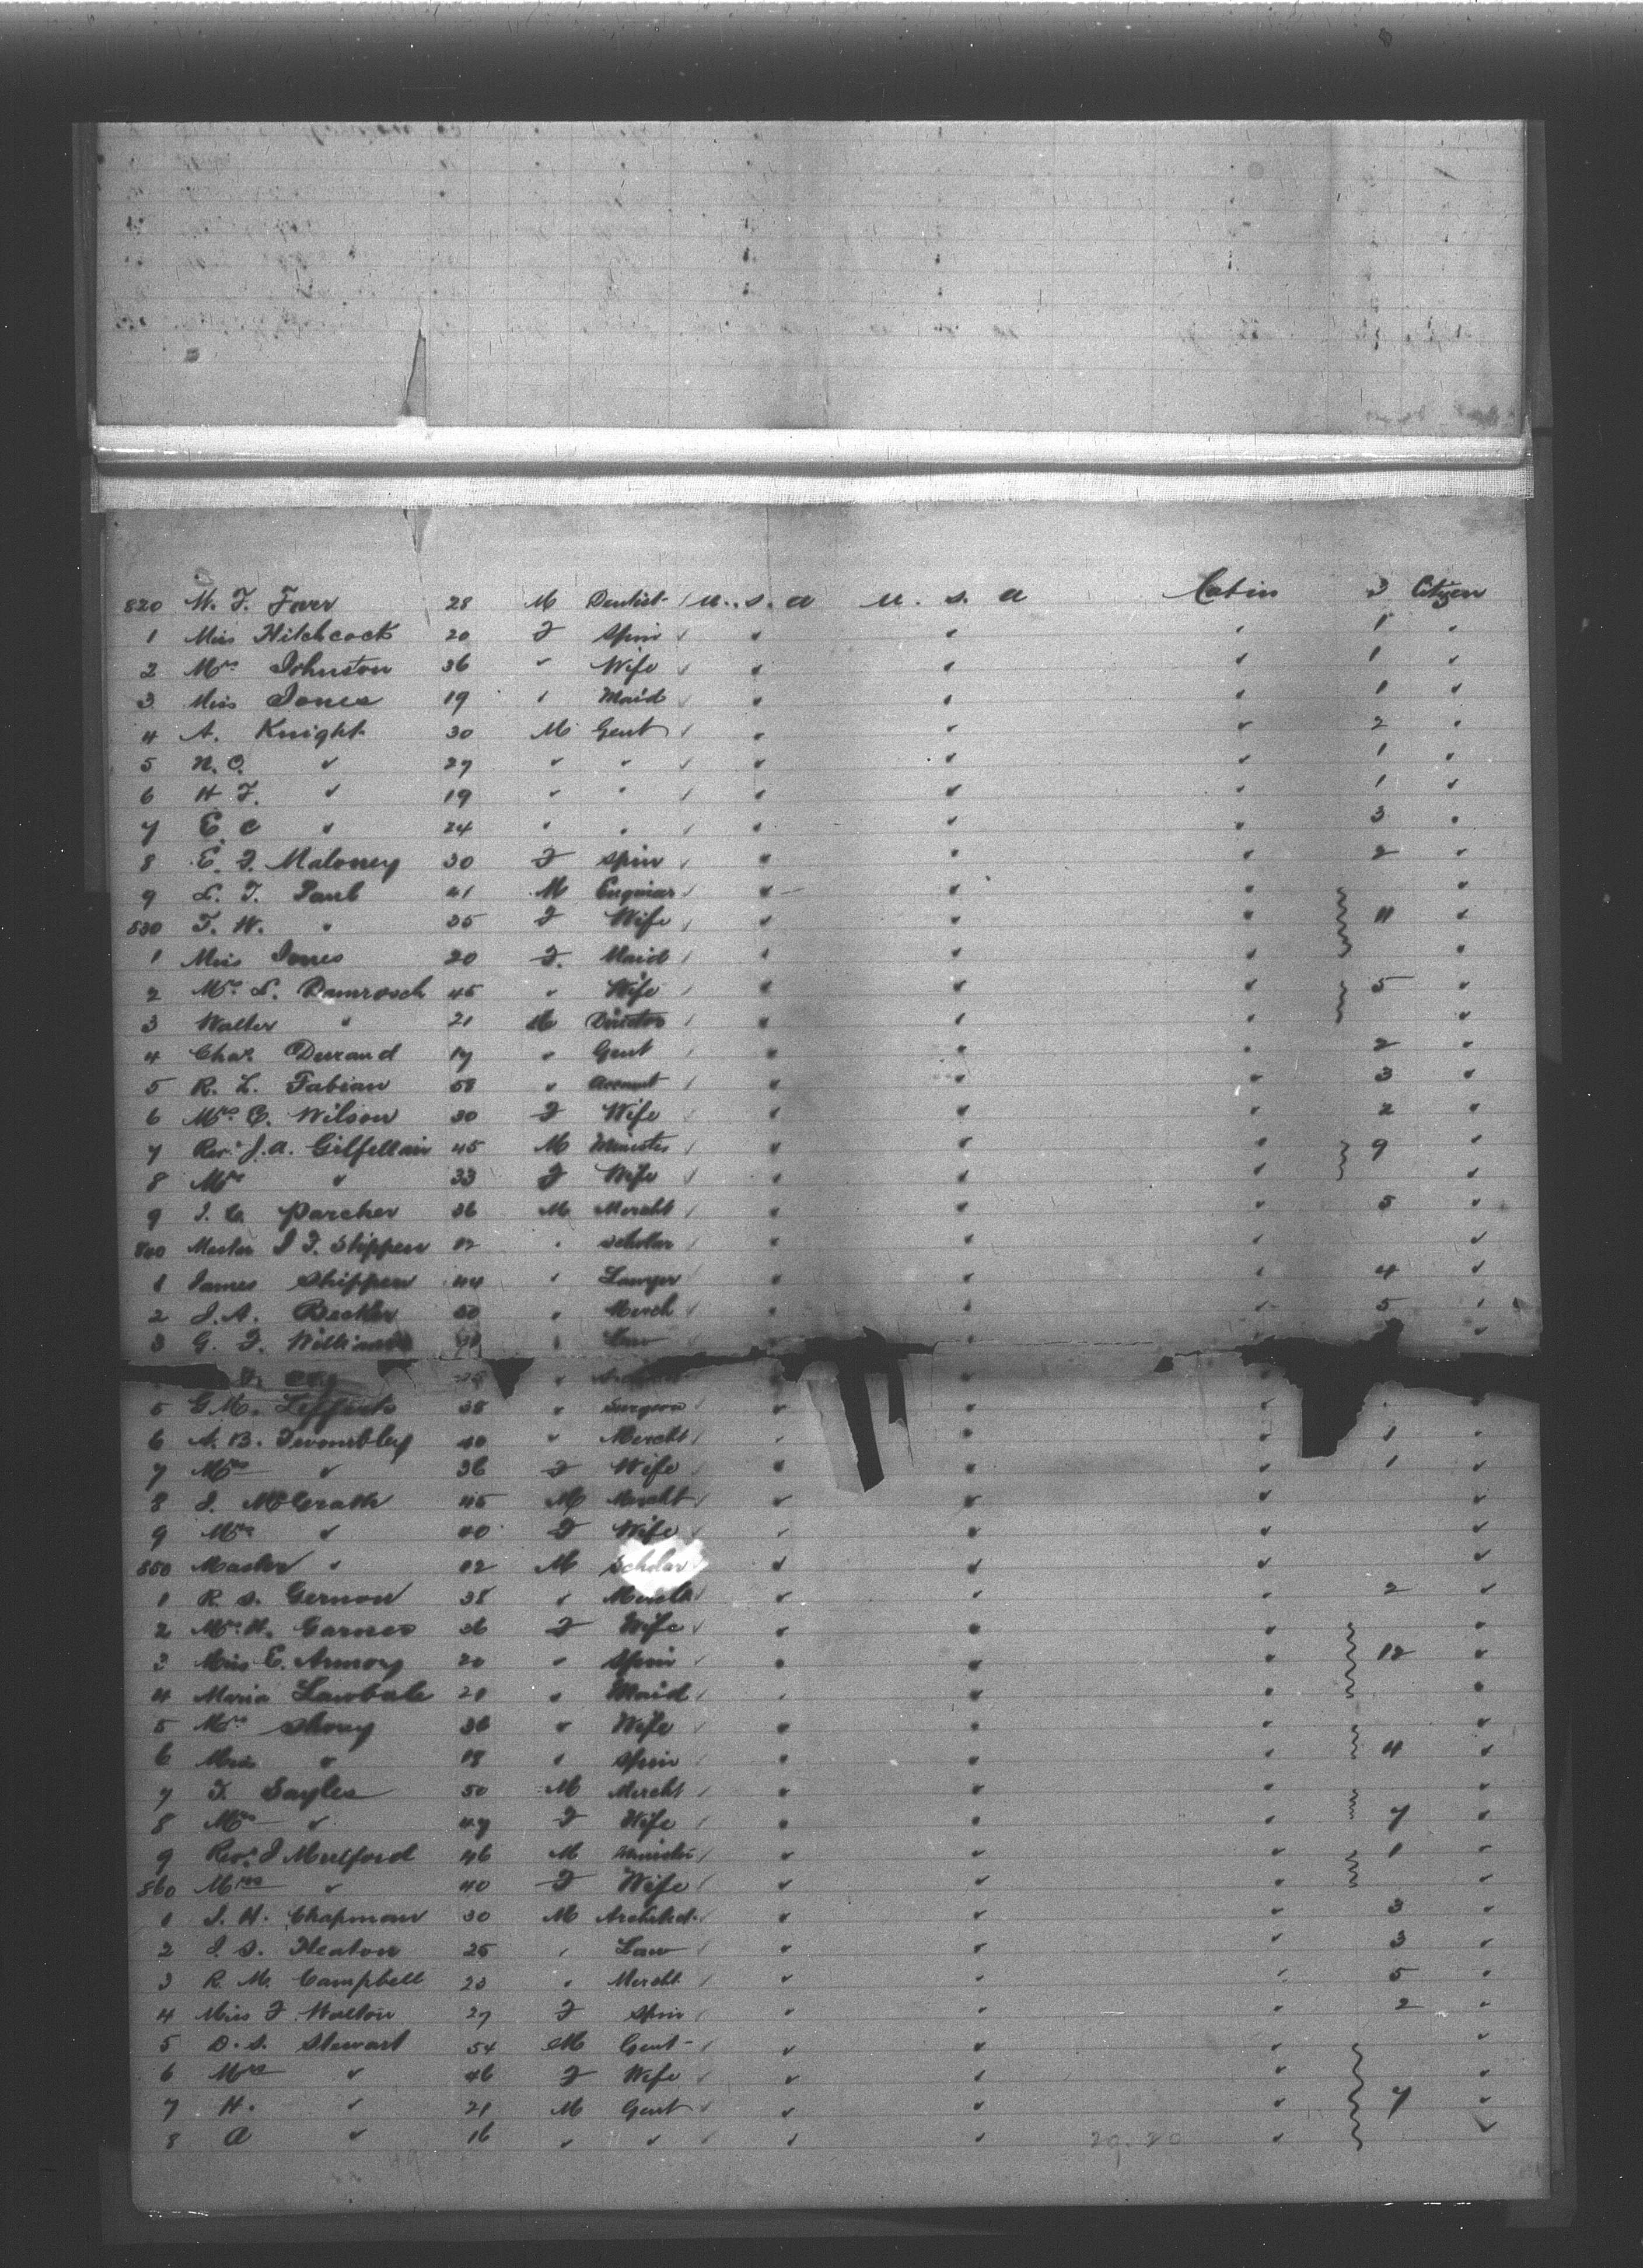 820 M. F. Farr 28 M Dentist / U. S. A U. S. A Cabin 3 Citizen
1 Miss Hitchcock 20 F Spin ✓ " " " 1 "
2 Mrs Johnston 36 " Wife ✓ " " " 1 "
3 Miss Jones 19 " Maid ✓ " " " 1 "
4 A. Knight 30 M Gent ✓ " " " 2 "
5 N. O. " 27 " " ✓ " " " 1 "
6 H. F. " 19 " " / " " " 1 "
7 E. C " 24 " " / " " " 3 "
8 E. F. Maloney 30 F Spin / " " " 2 "
9 L. T. 41 M / " " " "
830 F. W. " 35 F Wife / " " " 11 "
1 Miss Jones 20 F. Maid / " " " "
2 Mrs L. Damrosch 45 " Wife / " " " 5 "
3 Walter " 21 M Director / " " " "
4 Chas. Durand 17 " Gent / " " " 2 "
5 R. L. Fabian 58 " Accout / " " " 3 "
6 Mrs C. Wilson 30 F Wife / " " " 2 "
7 Rev. J. A. Gilfellain 45 M Minister / " " " 9 "
8 Mrs " 33 F Wife / " " " "
9 J. C. Parcher 36 M Mercht / " " " 5 "
Master J F. Shippen 12 " Scholar / " " " "
1 James Shippen 44 " Lawyer / " " " 4 "
2 J. A. Becker " Merch / " " " 5 "
3 G. F. Williams " Law "
"
5 G. M. Lefferts 38 " Surgeon / " " " "
6 A. B. Twombley 40 " Mercht / " " " 1 "
7 Mrs " 36 F Wife / " " " 1 "
8 J. McGrath 45 M Mercht / " " " "
9 Mrs " 40 F Wife / " " " "
850 Master " 12 M Scholar " " " "
1 R. S. Gernon 38 " Mercht " " " 2 "
2 Mrs H. Garner 36 F Wife / " " " "
3 Miss E. Armory 20 " Spin / " " " 12 "
4 Maria 21 " Maid / " " " "
5 Mrs Shoey 36 " Wife / " " " "
6 Miss " 18 " Spin / " " " 4 "
7 F. Sayles 50 M Mercht " " " "
8 Mrs " 47 F Wife / " " " 7 "
9 Rev. J Mulford 46 M Minister / " " " 1 "
860 Mrs " 40 F Wife / " " " "
1 J. H. Chapman 30 M Architect / " " " 3 "
2 J. S. Heaton 25 " Law / " " " 3 "
3 R. M. Campbell 23 " Mercht / " " " 5 "
4 Miss F. Walton 27 F Spin / " " " 2 "
5 D. S. Stewart 54 M Gent / " " " "
6 Mrs " 46 F Wife / " " " "
7 H. " 21 M Gent ✓ " " " 7 "
8 A " 16 " " ✓ " " " "
29.20